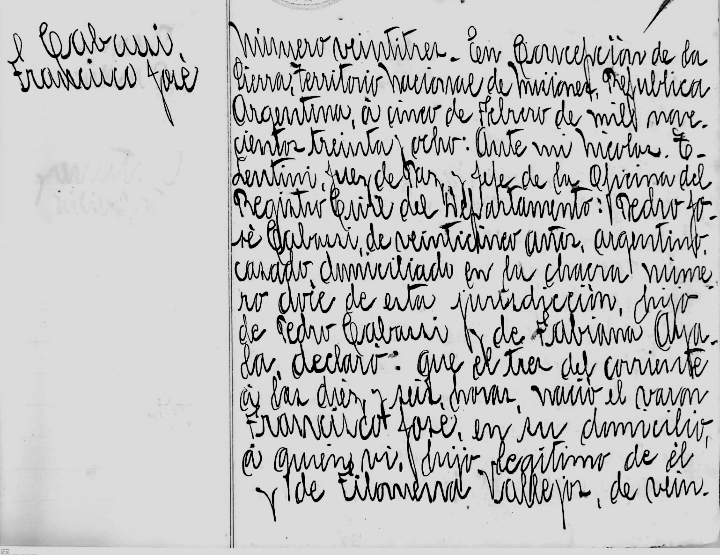 Cabauí
Francisco José
Número veintitres. En Concepción de la
Sierra, territorio Nacional de Misiones, República
Argentina, á cinco de Febrero de mil nove-
cientos treinta y ocho: Ante mi Nicolas. E.
Lentini, Juez de Paz, y Jefe de la Oficina del
Registro Civil del Departamento: Pedro Jo-
sé Cabauí, de veinticinco años, argentino,
casado, domiciliado en la chacra núme-
ro doce de esta jurisdicción, hijo
de Pedro Cabauí y de Fabiana Aya-
la, declaró: que el tres del corriente
á las diez y seis horas, nació el varon
Francisco José, en su domicilio,
á quien ví, hijo legítimo de él
y de Filomena Vallejos, de vein-